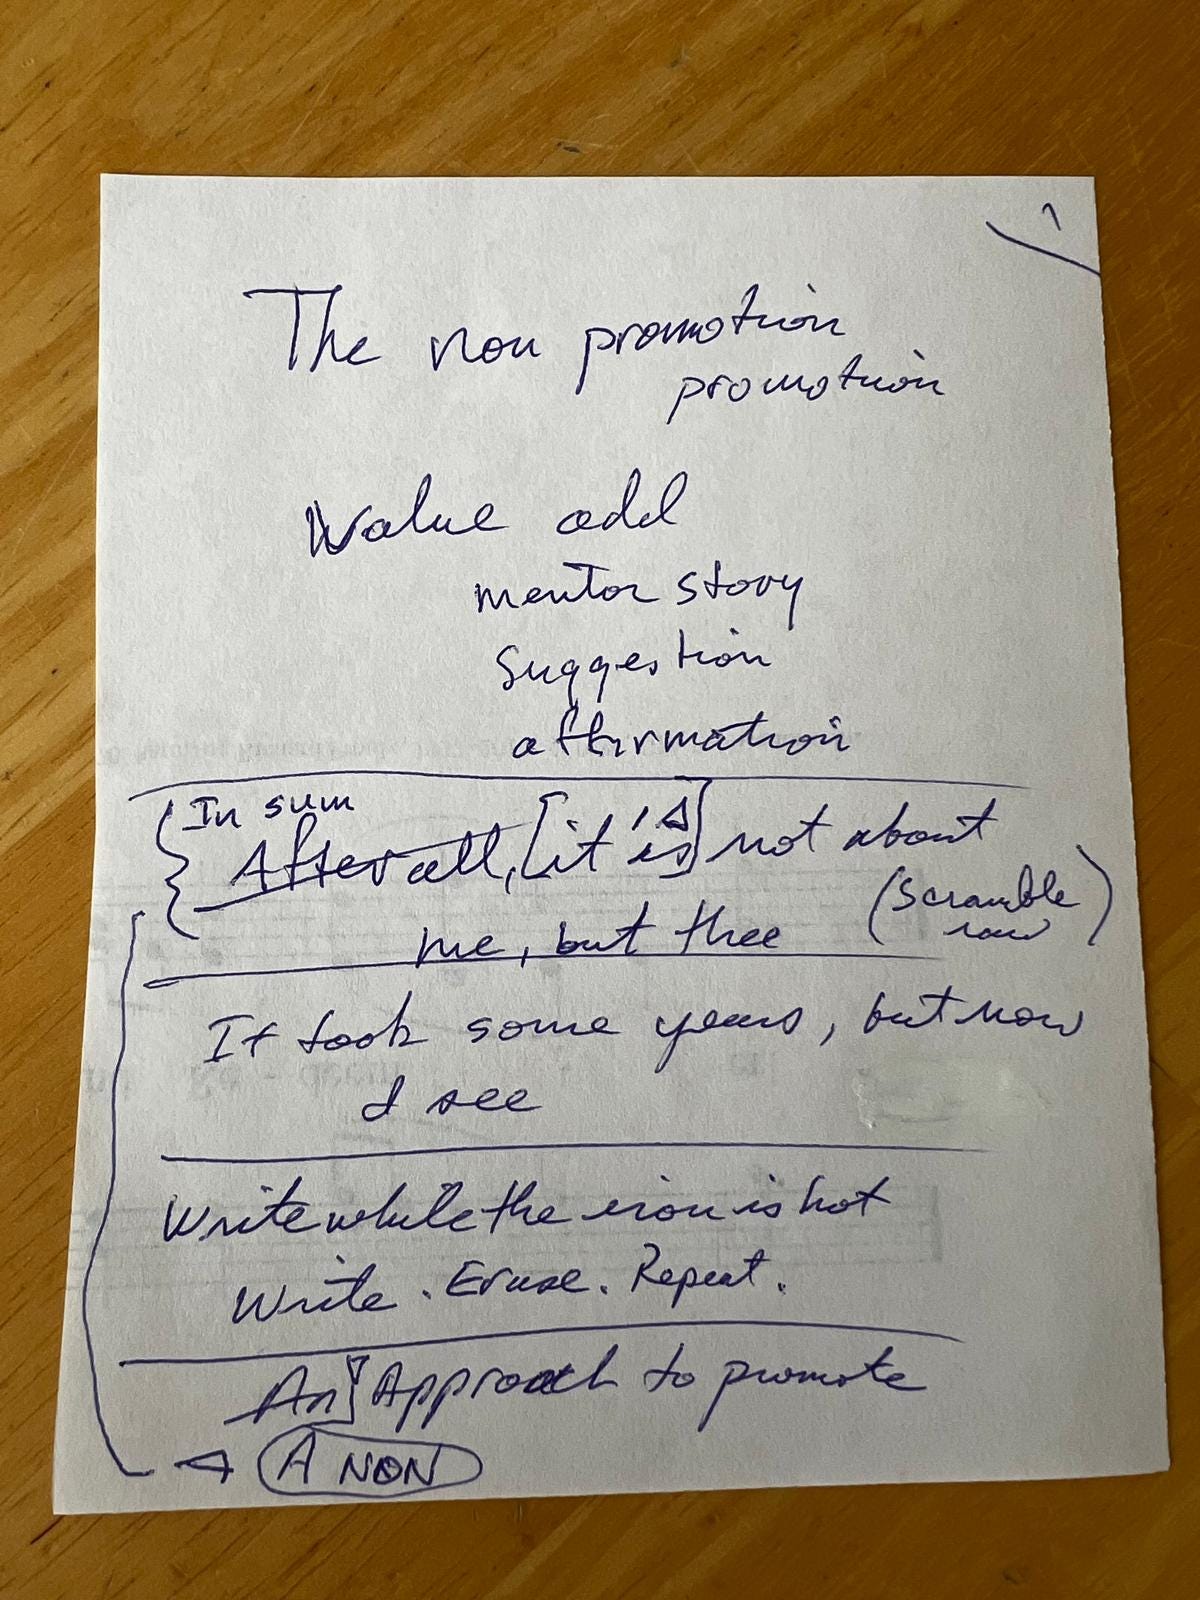 1
The non promotion
promotion
Value add
mentor story
suggestion
affirmation
In sum
After all, [it is] not about
me, but thee
(Scramble
row)
It took some years, but now
I see
Write while the iron is hot
Write. Erase. Repeat.
An Approach to promote
A NON